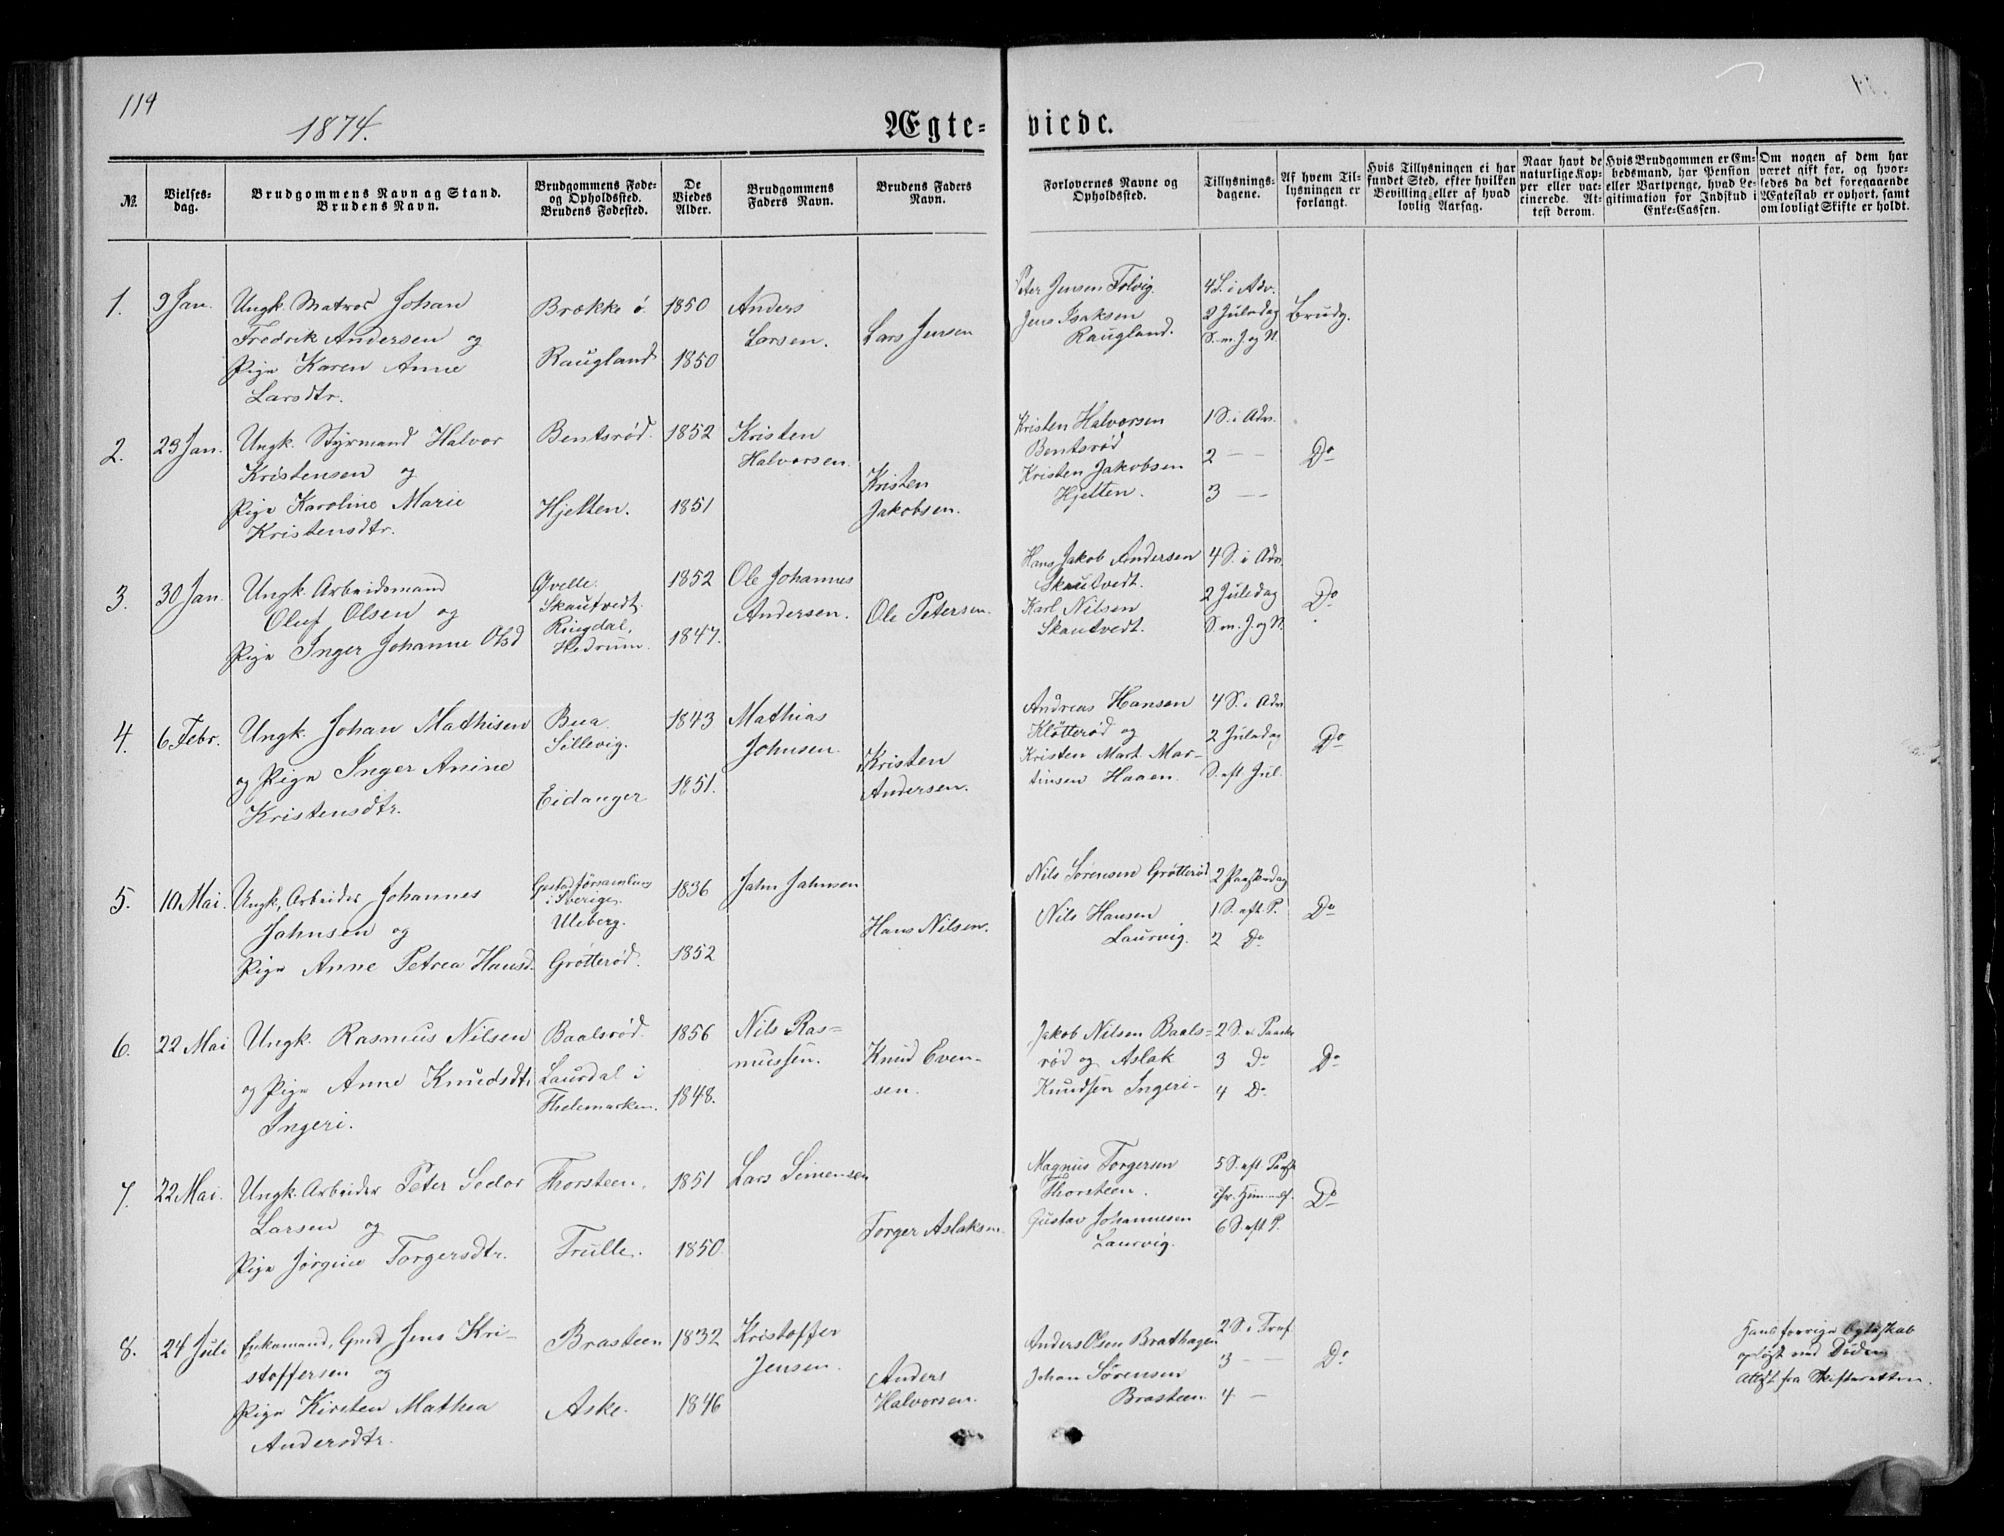 119
1874.
Ægte-
viede.
№.
Vielses-
dag.
Brudgommens Navn ag Stand.
Brudens Navn.
Brudgommens Føde-
og Opholdssted.
Brudens Fødested.
De
Viedes
Alder.
Brudgommens
Faders Navn.
Brudens Faders
Navn.
Forlovernes Navne og
Opholdssted.
Tillysnings-
dagene.
Af hvem Til-
lysningen er
forlangt.
Hvis Tillysningen ei har
fundet Sted, efter hvilken
Bevilling eller af hvad
lovlig Aarsag.
Naar havt de
naturlige Kop-
per eller vac-
cinerede. At-
test derom.
Hvis Brudgommen er Em-
bedsmand, har Pension
eller Vartpenge, hvad Le-
gitimation for Indskud i
Enke-Cassen.
Om nogen af dem har
været gift før, og hvor-
ledes da det foregaaende
Ægteskab er ophørt, samt
om lovligt Skifte er holdt.
1.
9 Jan.
Ungk. Matros Johan
Fredrik Andersen og
Pige Karen Anne
Larsdtr.
Brække ø.
Raugland
1850
1850
Anders
Larsen.
Lars Jensen
Peter Jensen Tolvig.
Jens Isaksen
Raugland.
4 S. i Adv.
2 Juledag
S. m. J. og N.
Brudg.
2.
23 Jan.
Ungk. Styrmand Halvor
Kristensen og
Pige Karoline Marie
Kristensdtr.
Bentsrød.
Hjelten.
1852
1851
Kristen
Halvorsen.
Kristen
Jakobsen.
Kristen Halvorsen
Bentsrød
Kristen Jakobsen
Hjelten.
1 S. i Adv.
2 — —
3 — —
Do
3.
30 Jan.
Ungk. Arbeidsmand
Oluf Olsen og
Pige Inger Johanne Olsd
Qvelle.
Skautvedt.
Ringdal,
Hedrum.
1852
1847.
Ole Johannes
Andersen.
Ole Petersen.
Hans Jakob Andersen
Skautvedt.
Karl Nilsen
Skautvedt.
4 S. i Adv.
2 Juledag
S. m. J. og N.
Do
4.
6 Febr.
Ungk. Johan Mathisen
og Pige Inger Anine
Kristensdtr.
Bua
Sillevig.
Eidanger
1843
1851.
Mathias
Johnsen.
Kristen
Andersen.
Andreas Hansen
Kløtterød og
Kristen Mart. Mar-
tinsen Haaen.
4 S. i Adv
2 Juledag
S. eft Jul.
Do
5.
10 Mai.
Ungk. Arbeider Johannes
Jahnsen og
Pige Anne Petrea Hansd.
i Sverige
Uleberg.
Grøtterød.
1836
1852
Jahn Jahnsen
Hans Nilsen.
Nils Sørensen Grøtterød
Nils Hansen
Laurvig.
2 Paaskedag
1 S. eft P.
2 Do
Do
6.
22 Mai
Ungk. Rasmus Nilsen
og Pige Anne Knudsdtr
Ingeri.
Baalsrød.
Laurdal i
Thelemarken.
1856
1848.
Nils Ras-
mussen.
Knud Even-
sen.
Jakob Nilsen Baals-
rød og Aslak
Knudsen Ingeri-
2 S. e. Paaske
3 Do
4 Do
Do
7.
22 Mai.
Ungk. Arbeider Peter Sedor
Larsen og
Pige Jørgine Torgersdtr.
Thorsteen.
Trulle.
1851
1850
Lars Simensen
Torger Aslaksen.
Magnus Torgersen
Thorsteen.
Gustav Johannesen
Laurvig.
5 S. eft Paask
Kr. Himmelf.
6 S. eft P.
Do
8.
24 Juli
Enkemand, Grd Jens Kri-
stoffersen og
Pige Kirsten Mathea
Andersdtr.
Brasteen
Aske.
1832
1846
Kristoffer
Jensen.
Anders
Halvorsen.
Anders Olsen Brathagen
Johan Sørensen
Brasteen
2 S. i Tref.
3 — —
4 —
Do
Hans forrige Egteskab
opløst ved Døden
Attest fra Skifteretten.